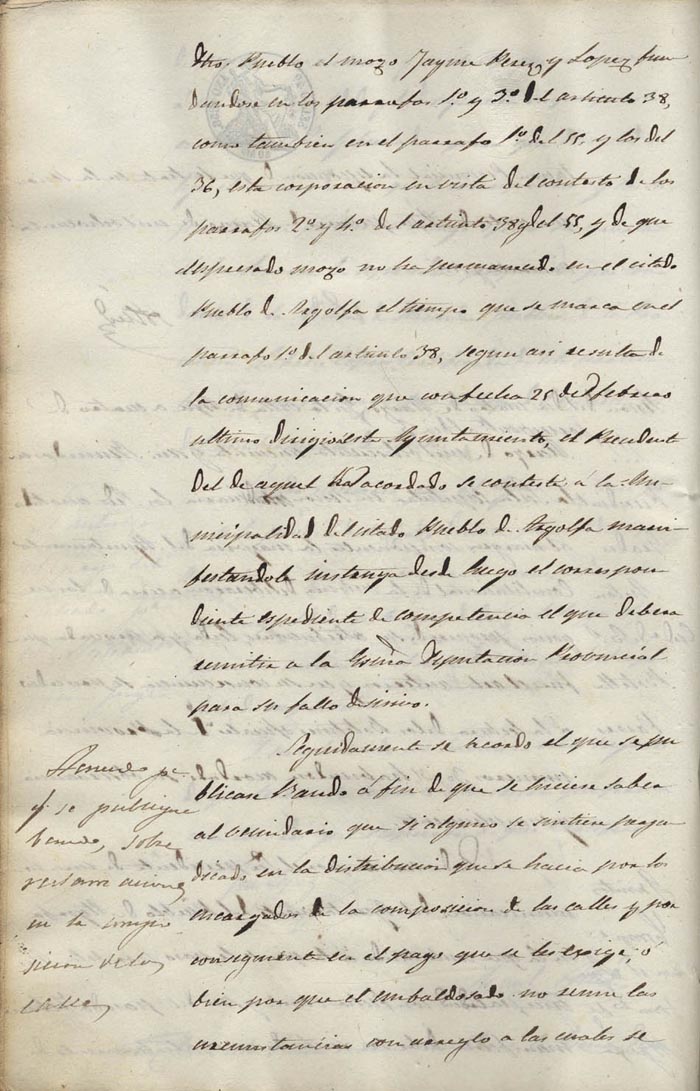 dho. Pueblo el mozo Jayme Perez y Lopez fun
dandose en los parrafos 1.º y 3.º del articulo 38,
como tambien en el parrafo 1.º del 55, y los del
36, esta corporacion en vista del contesto de los
parrafos 2.º y 4.º del articulo 38 y del 55, y de que
espresado mozo no ha permanecido en el citado
Pueblo de Algolfa el tiempo que se marca en el
parrafo 1.º del articulo 38, segun asi resulta de
la comunicacion que con fecha 25 de Febrero
ultimo dirigio á este Ayuntamiento, el Precidente
del de aquel acordado se conteste á la Mu-
nicipalidad del citado Pueblo de Algolfa mani-
festandole instruya desde luego el correspon
diente espediente de competencia el que debera
remitir a la Exma Diputacion Provincial
para su fallo decisivo.
Seguidamente se acordo el que se pu
blicase Bando á fin de que se hiciese saber
al vecindario que si alguno se sintiese perju
dicado en la distribucion que se hacia por los
encargados de la composicion de las calles y por
consiguiente en el pago que se les exige, ó
bien por que el embaldosado no reune las
circunstancias con arreglo a las cuales se
Acuerdo pa.
q. se publique
bando, sobre
reclamaciones
en la compo
sicion de las
calles